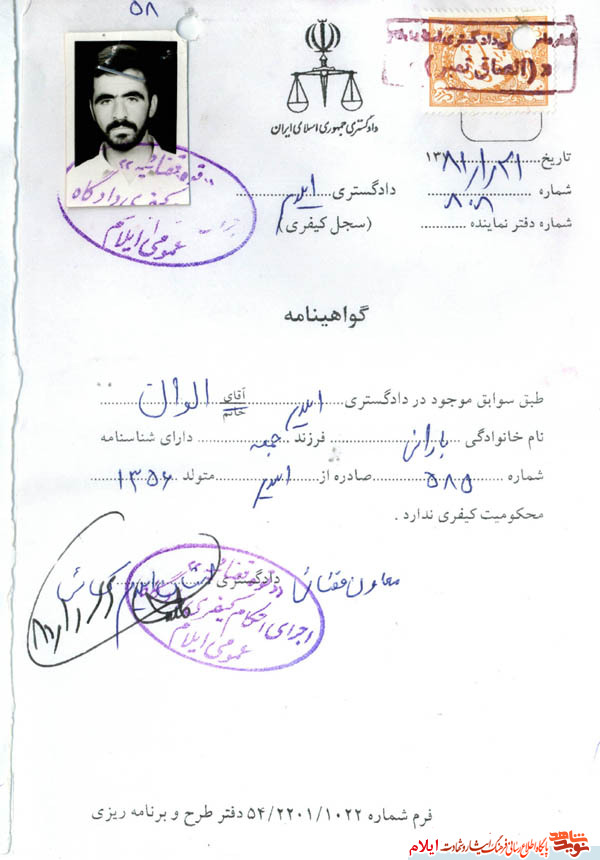 ۵۸
دادگستری جمهوری اسلامی ایران
(الصاق تمبر)
تاریخ ۱۳۸۱/۱/۳۱
شماره ۸۰۸
شماره دفتر نماینده
دادگستری ایلام
(سجل کیفری)
قوه قضائیه
کیفری دادگاه
عمومی ایلام
گواهینامه
طبق سوابق موجود در دادگستری ایلام آقای خانم الوان
نام خانوادگی بارانی فرزند جمعه دارای شناسنامه
شماره ۵۸۵ صادره از ایلام متولد ۱۳۵۶
محکومیت کیفری ندارد .
معاون قضائی دادگستری
اجرای احکام کیفری
عمومی ایلام
فرم شماره ۵۴/۲۲۰۱/۱۰۲۲ دفتر طرح و برنامه ریزی
نوید شاهد پایگاه اطلاع رسانی فرهنگ ایثار و شهادت ایلام